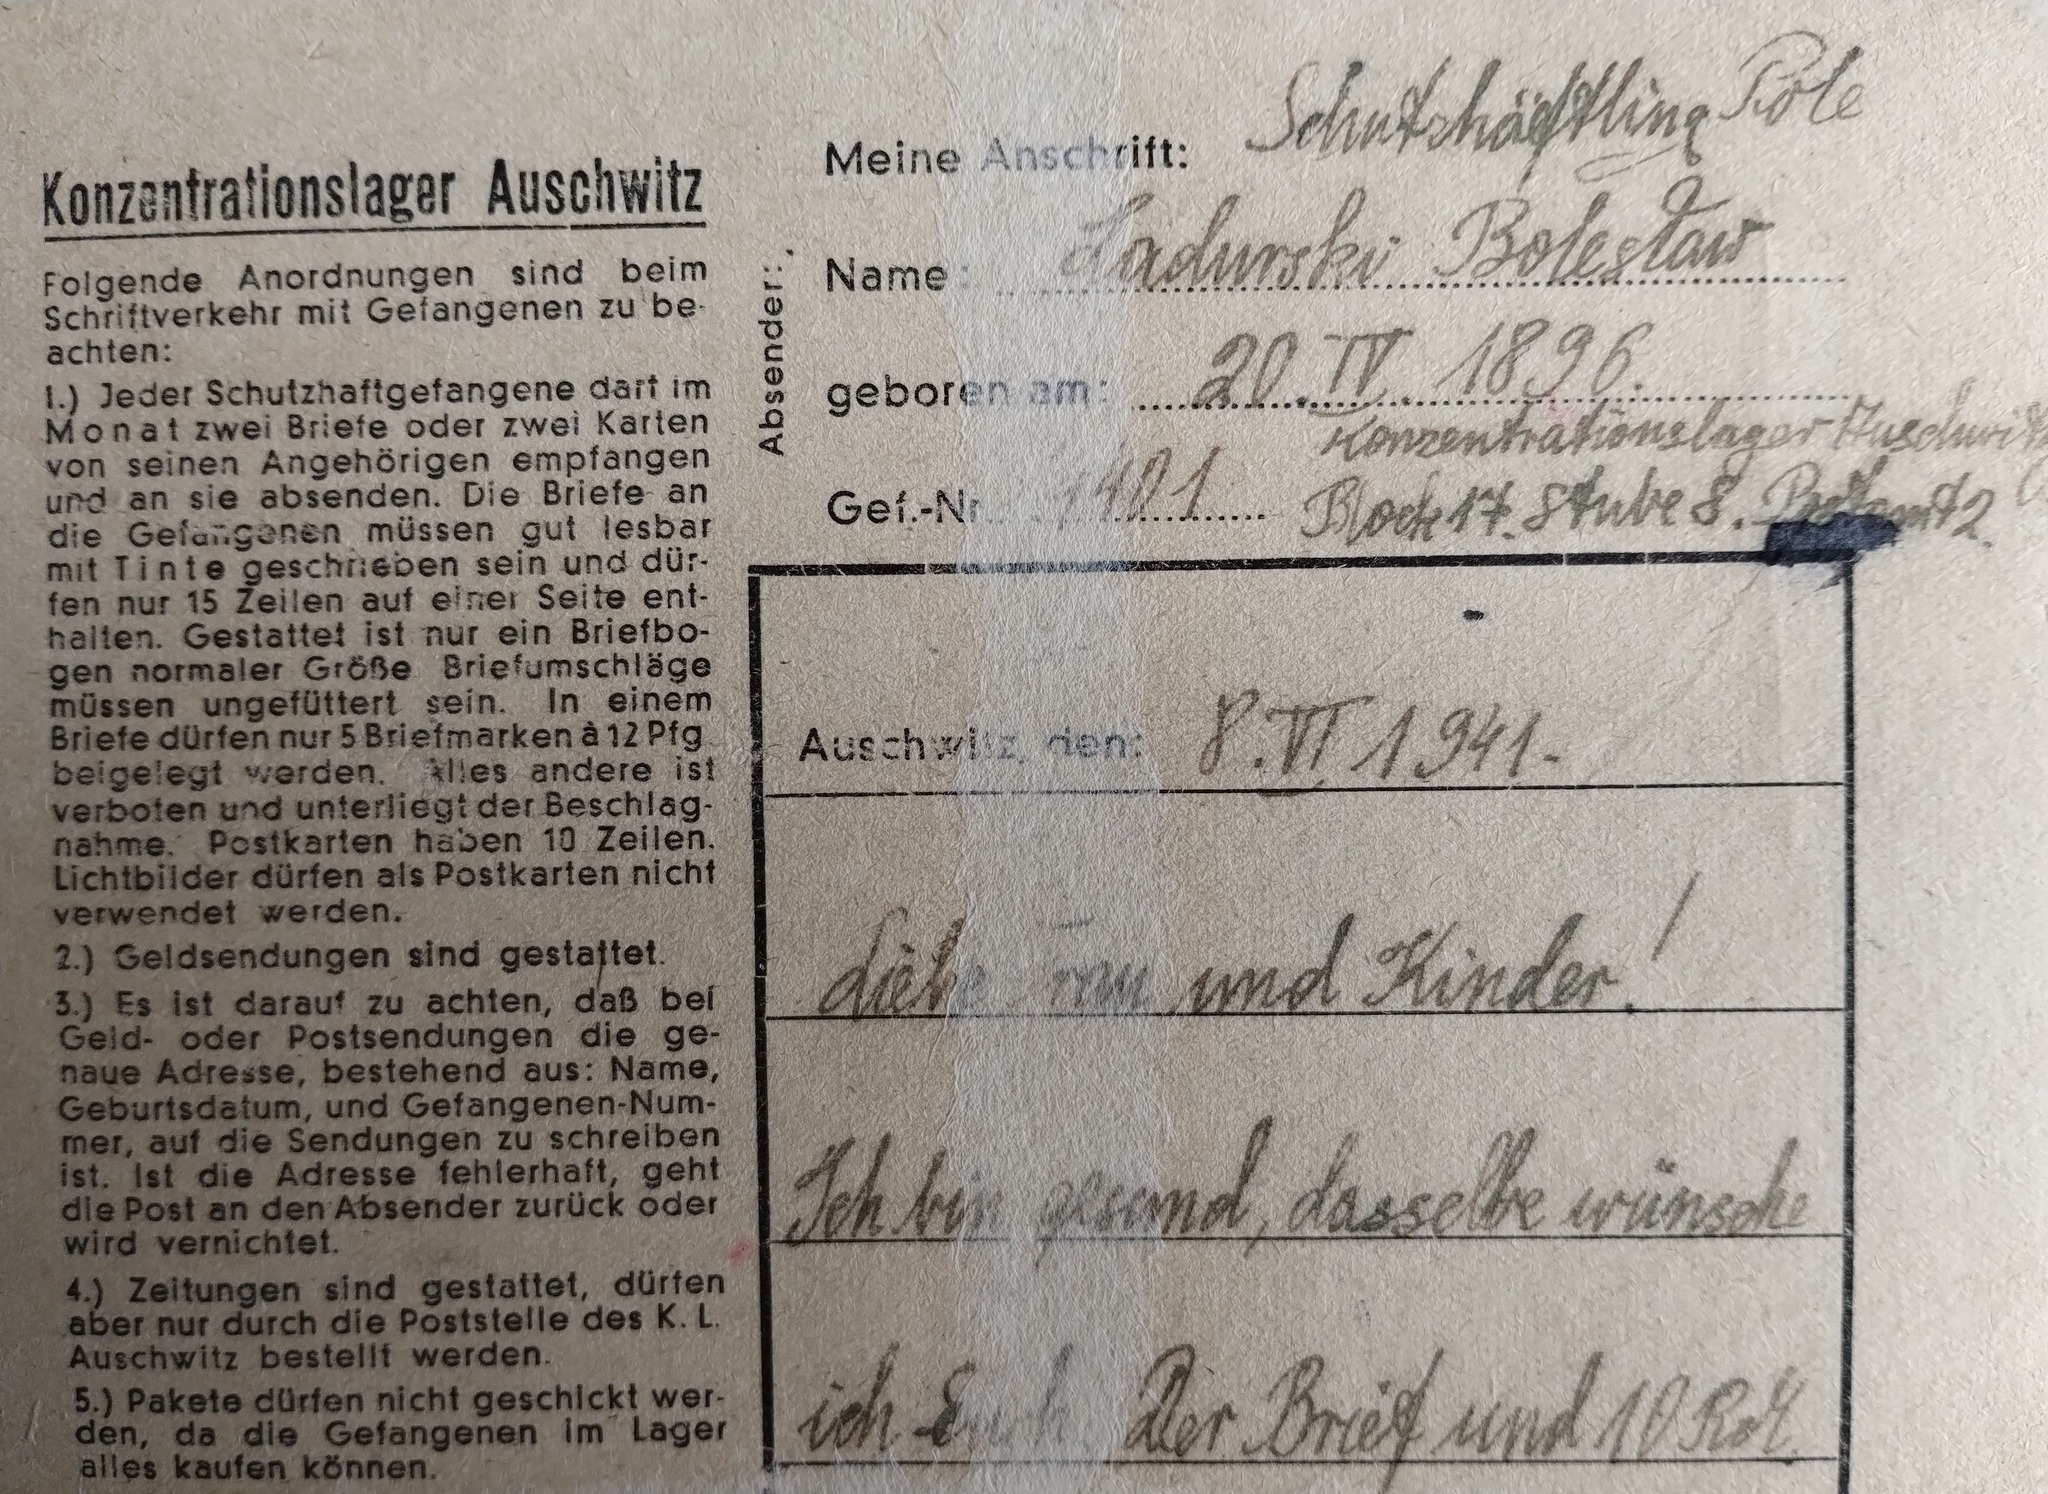 Konzentrationslager Auschwitz
Folgende Anordnungen sind beim
Schriftverkehr mit Gefangenen zu be-
achten:
1.) Jeder Schutzhaftgefangene darf im
Monat zwei Briefe oder zwei Karten
von seinen Angehörigen empfangen
und an sie absenden. Die Briefe an
die Gefangenen müssen gut lesbar
mit Tinte geschrieben sein und dür-
fen nur 15 Zeilen auf einer Seite ent-
halten. Gestattet ist nur ein Briefbo-
gen normaler Größe Briefumschläge
müssen ungefüttert sein. In einem
Briefe dürfen nur 5 Briefmarken à 12 Pfg
beigelegt werden. Alles andere ist
verboten und unterliegt der Beschlag-
nahme. Postkarten haben 10 Zeilen.
Lichtbilder dürfen als Postkarten nicht
verwendet werden.
2.) Geldsendungen sind gestattet.
3.) Es ist darauf zu achten, daß bei
Geld- oder Postsendungen die ge-
naue Adresse, bestehend aus: Name,
Geburtsdatum, und Gefangenen-Num-
mer, auf die Sendungen zu schreiben
ist. Ist die Adresse fehlerhaft, geht
die Post an den Absender zurück oder
wird vernichtet.
4.) Zeitungen sind gestattet, dürfen
aber nur durch die Poststelle des K. L.
Auschwitz bestellt werden.
5.) Pakete dürfen nicht geschickt wer-
den, da die Gefangenen im Lager
alles kaufen können.
Absender:
Meine Anschrift: Schutzhäftling Pole
Name: Bolesław
geboren am: 20 IV 1896.
Konzentrationslager Auschwitz
Gef.-Nr Block 17. Stube 8. 2.
Auschwitz, den: 8. VI 1941.-
Liebe und Kinder!
Ich bin gesund, dasselbe wünsche
ich Euch. Der Brief und 10 RM.